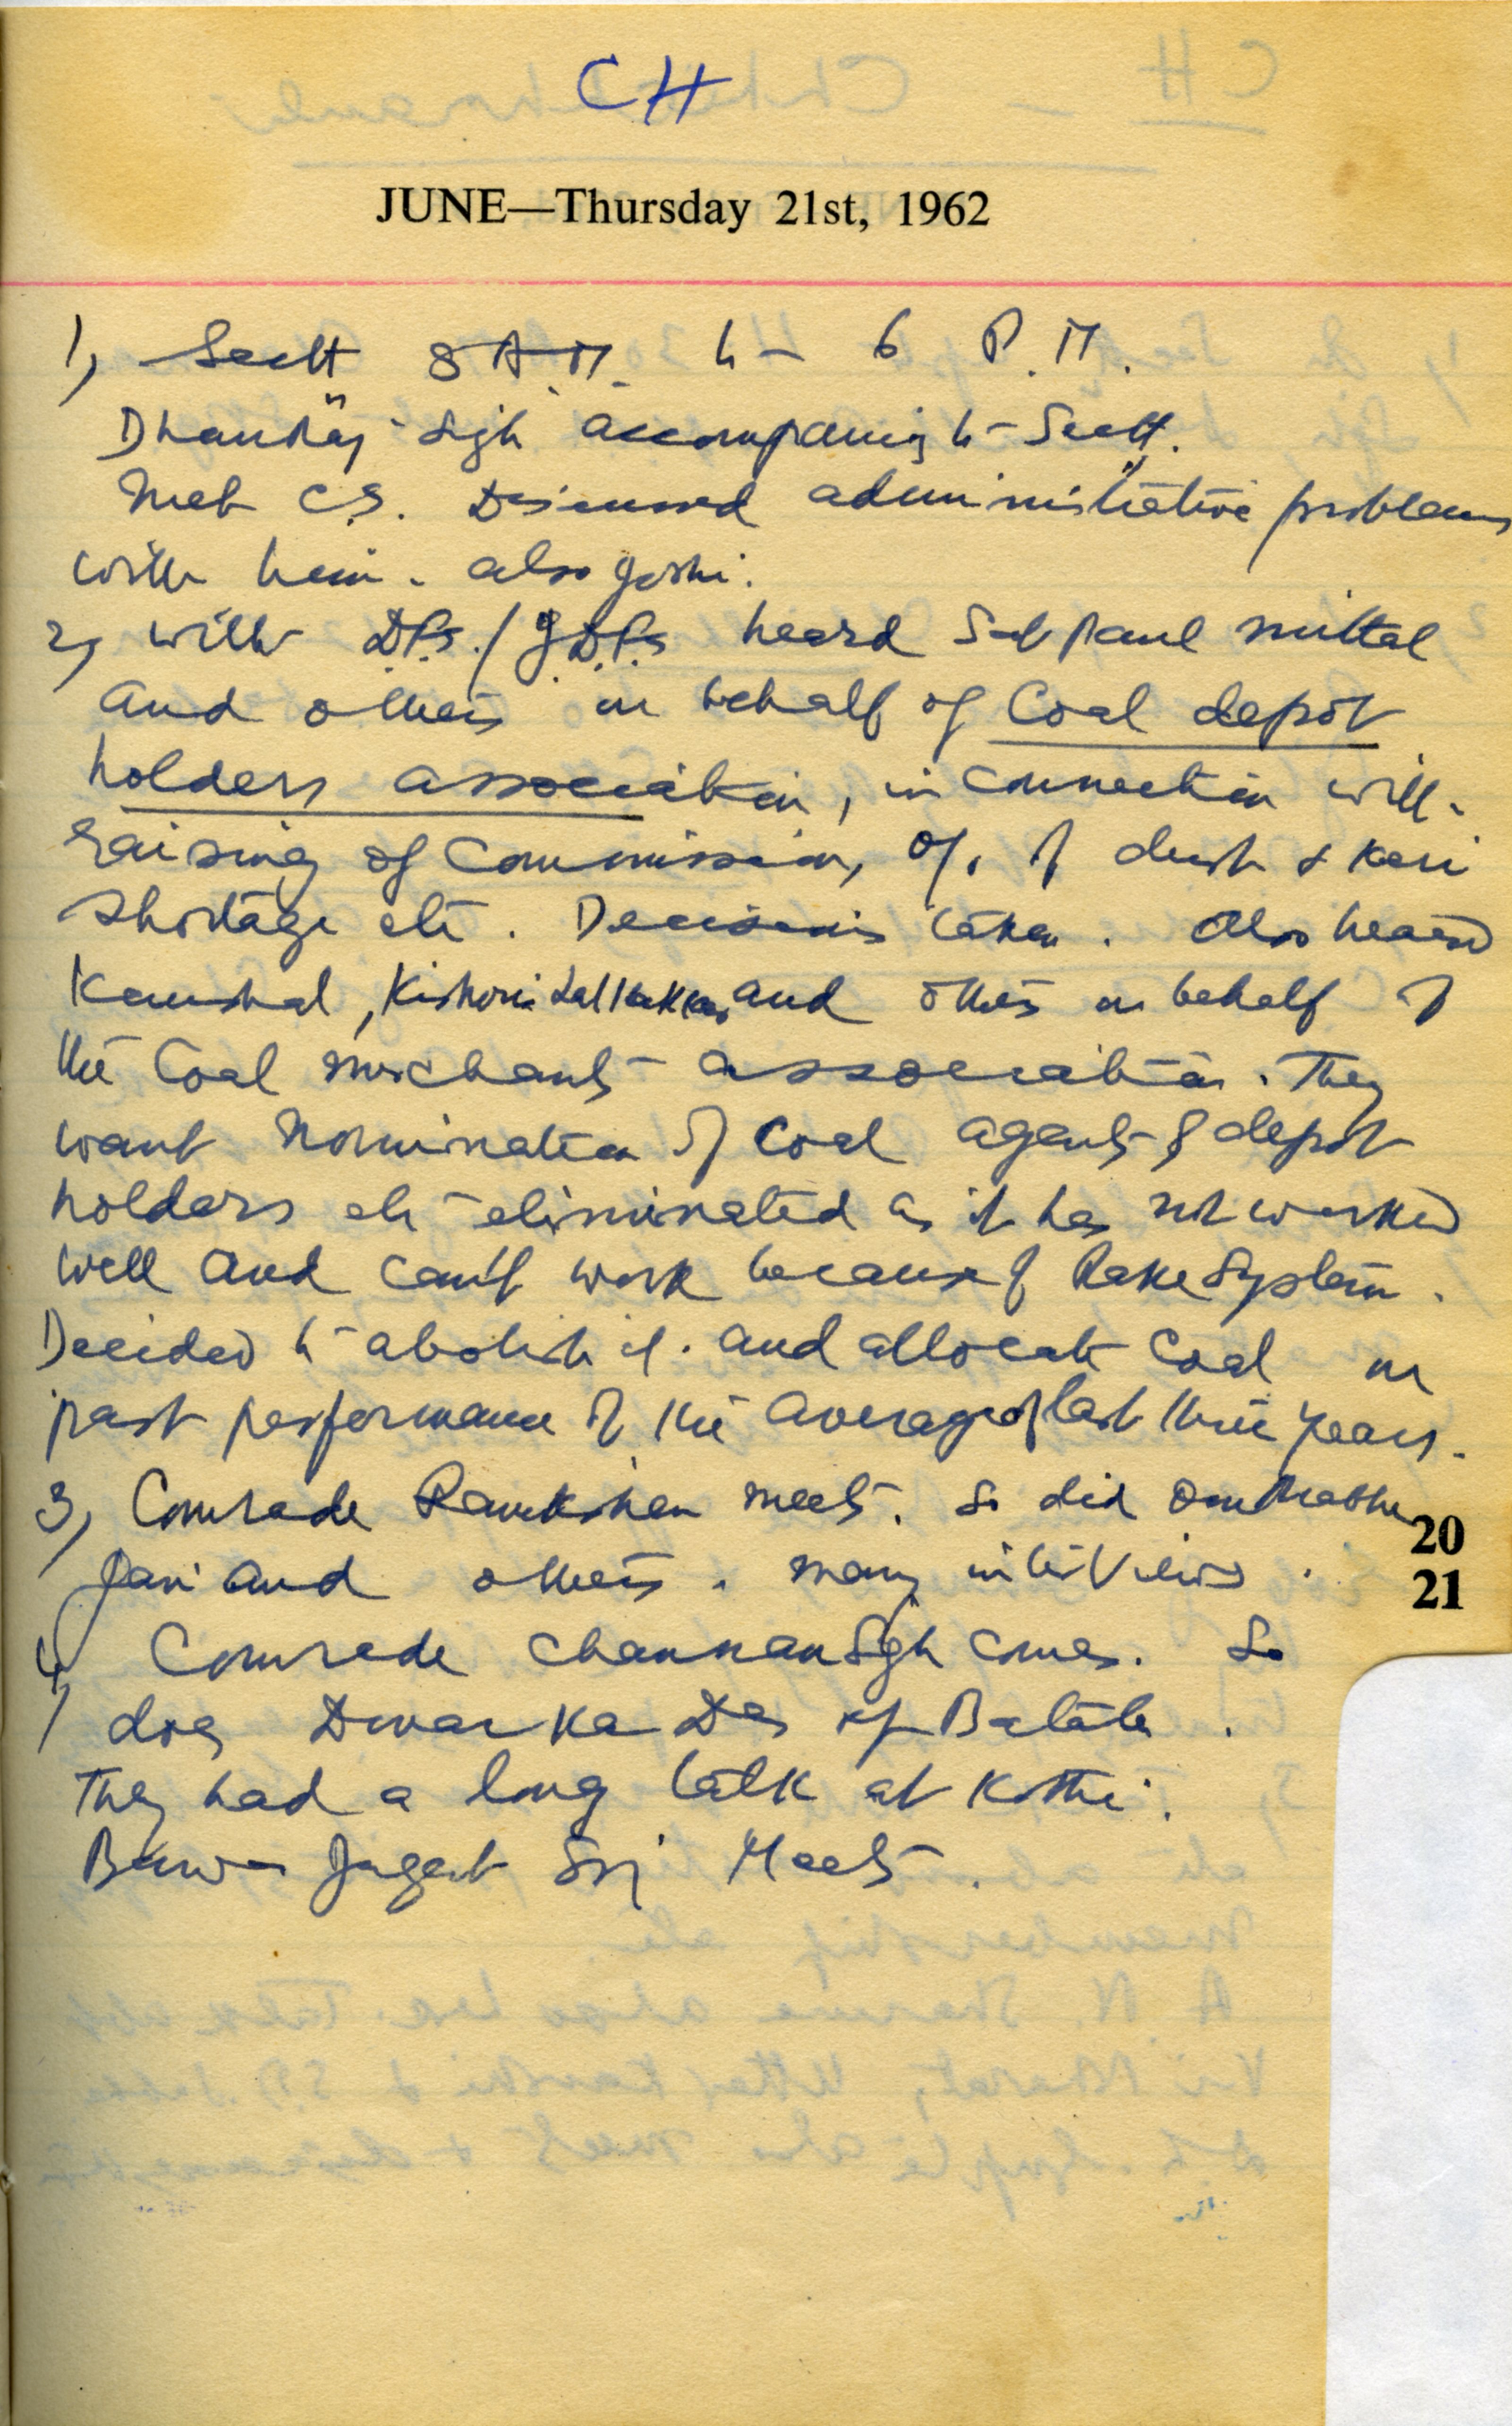 CH
JUNE—Thursday 21st, 1962
1, Sectt 8 A.M. to 6 P.M.
Dhanraj Sigh accompanies to Sectt.
Met C.S. Discussed administrative problems
with him. also Joshi.
2, with D.F.S./J.D.F.S heard Sat Paul Mittal
and others on behalf of Coal depot
holders association, in connection with
raising of Commission, % of dust & Keri
shortage etc. Decisions taken. Also heard
Kaushal, Kishori Lal and others on behalf of
the Coal merchants association. They
want nomination of Coal agents & depot
holders etc eliminated as it has not worked
well and can't work because of Rake System.
Decided to abolish it. and allocate Coal on
past performance of the average of last three years.
3, Comrade Ramkishen meets. So did Om Prabha
Jain and others. many interviews.
20
21
4, Comrade Channan Sgh comes. So
does Dwarka Das of Batala.
They had a long talk at Kothi.
Bawa Jagat Sgh Meets.